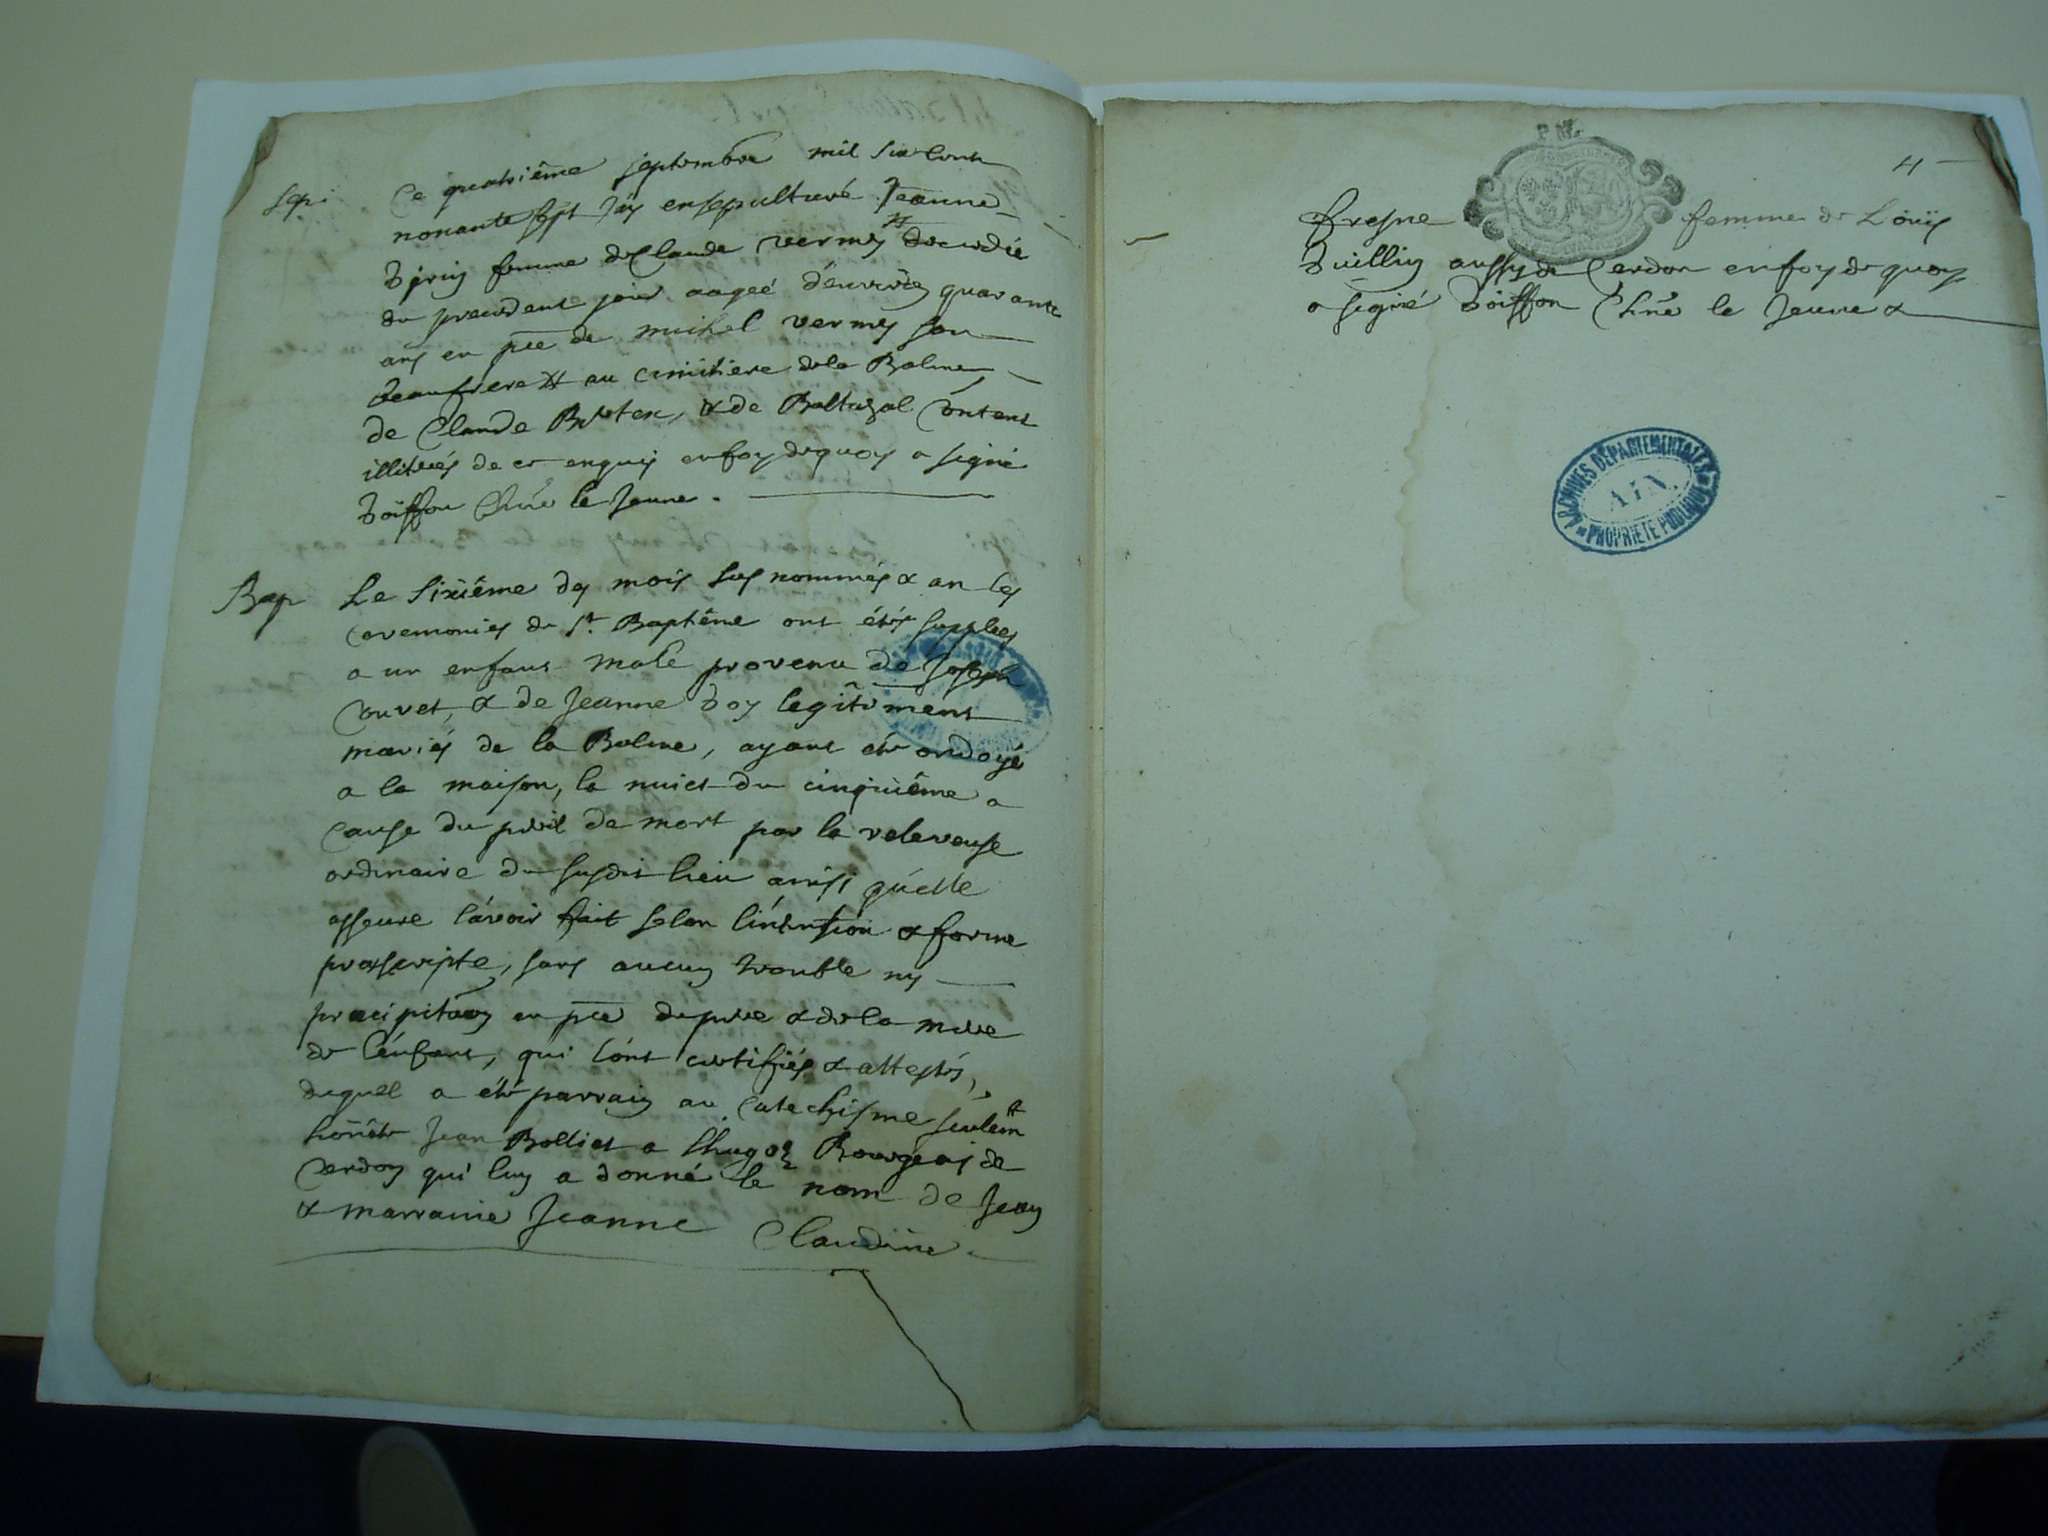 Sep:
Ce quatriême septembre mil six cent
nonante sept j'ay ensepulturé Jeanne
femme de Claude Vermey decedée
du precedent jour aageé d'environ quarante
ans en pce de Michel Vermey son
beaufrere # au cimitiere de la Balme,
de Claude & de Baltazal Contens
illiteréz de ce enquis en foy de quoy a signé
Boisson le Jeune.
Bap
Le sixiême des mois susnommés & an les
ceremonies du St. Baptême ont étés supplées
a un enfant male provenu de Joseph
Couvet, & de Jeanne Boy legitîmement
mariés de la Balme, ayant été ondoyé
a la maison, la nuict du cinquiême a
cause du peril de mort par la releveuse
ordinaire du susdit lieu ainsi qu'elle
asseure l'avoir fait selon l'intention & forme
prescripte, sans aucun trouble ny
precipitaõn en pce du pere & de la mere
de l'enfant, qui l'ont certifiés & attestés,
duquel a été parrain au catechisme seulemt
honête Jean Bolliet a Bourgeois de
Cerdon qui luy a donné le nom de Jean
& marraine Jeanne Claudine
4
fresne femme de Loüis
Vuillin aussy de Cerdon en foy de quoy
a signé Boisson le Jeune &
ARCHIVES DÉPARTEMENTALES
AIN
PROPRIÉTÉ PUBLIQUE